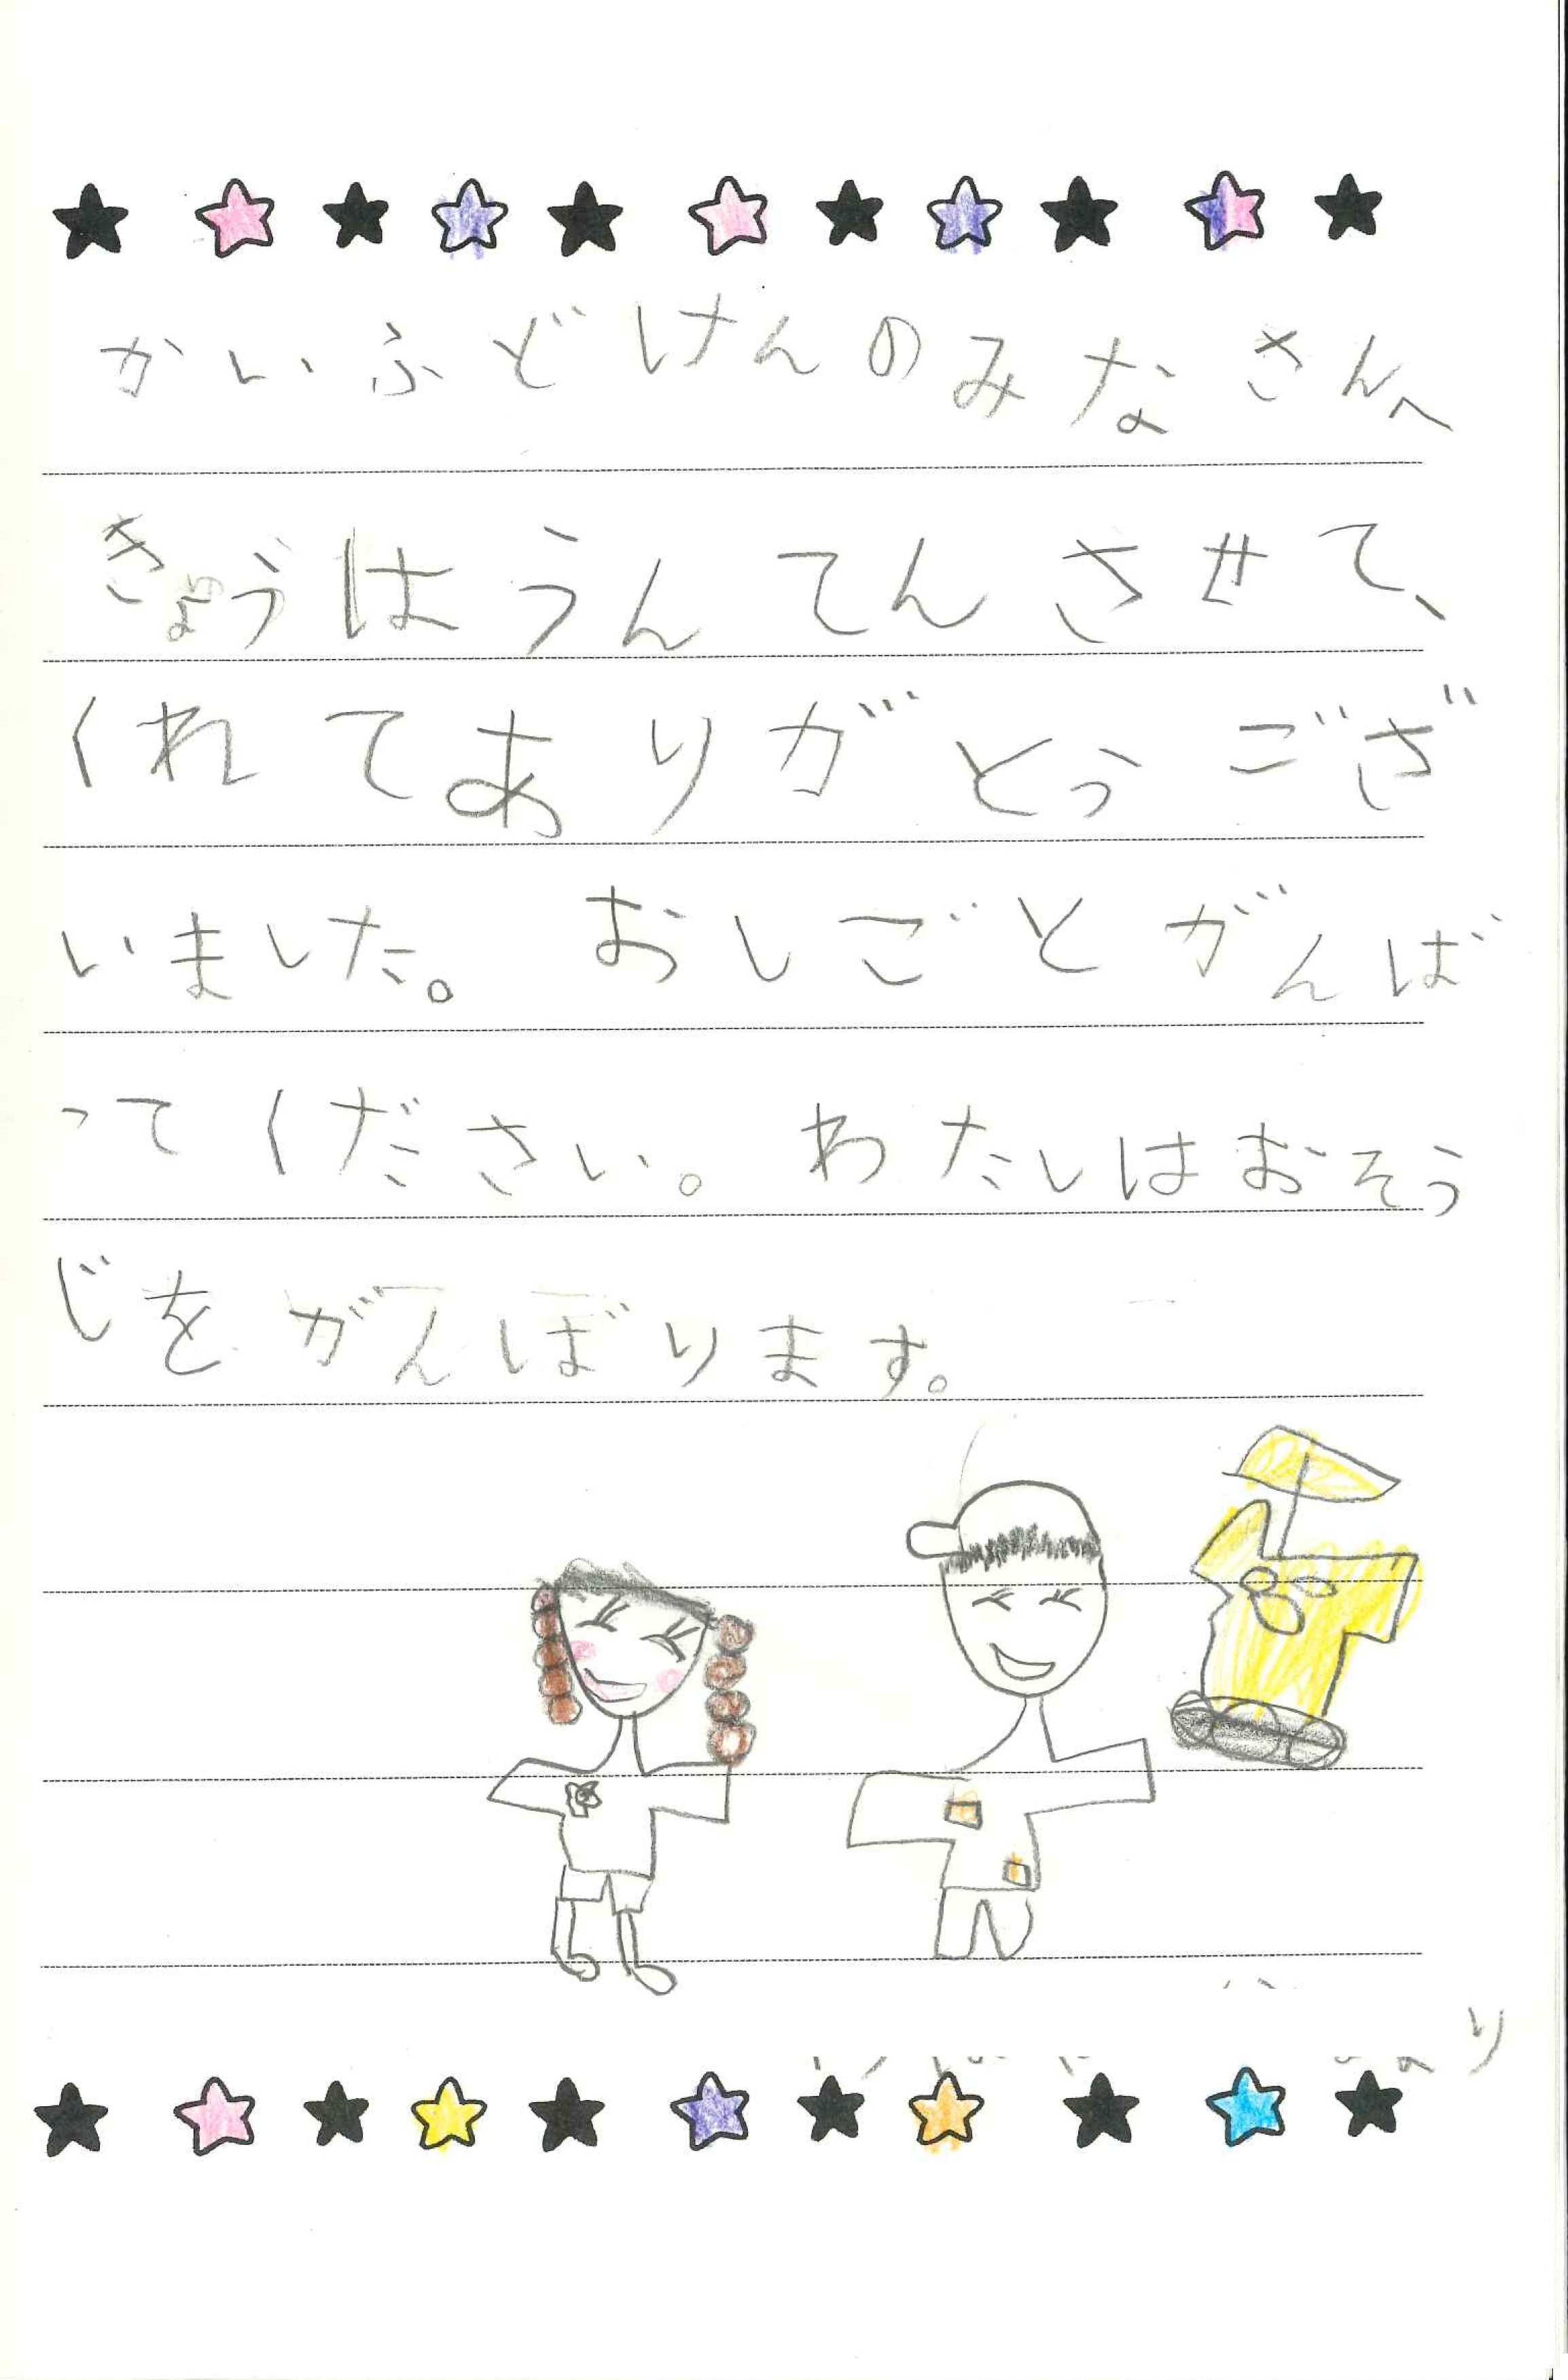 かいふどけんのみなさんへ
きょうはうんてんさせて、
くれてありがとうござ
いました。 おしごとがんば
ってください。わたしはおそう
じをがんぼります。